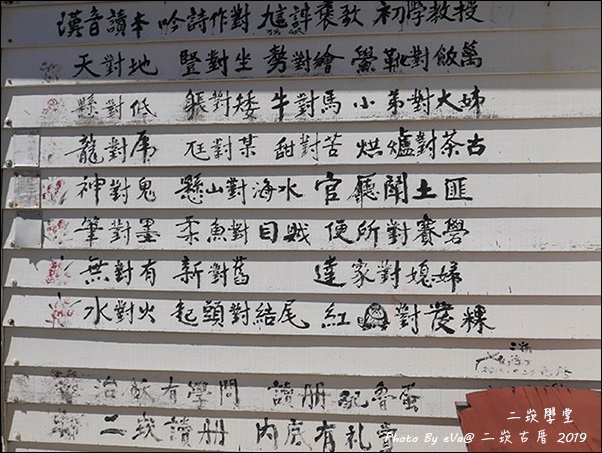 漢音讀本 吟詩作對 褒歌 初學教授
天對地 豎對坐 勢對繪 靴對飯萬
懸對低 躼對矮 牛對馬 小弟對大姊
龍對虎 尪對某 甜對苦 烘爐對茶古
神對鬼 懸山對海水 官廳閣土匪
筆對墨 柔魚對目賊 便所對賽礐
無對有 新對舊 達家對媳婦
水對火 起頭對結尾 紅 對發粿
治 有學問 讀册 配魯蛋
二崁讀册 內底有礼
二崁學堂
Photo By eVa@ 二崁古厝 2019